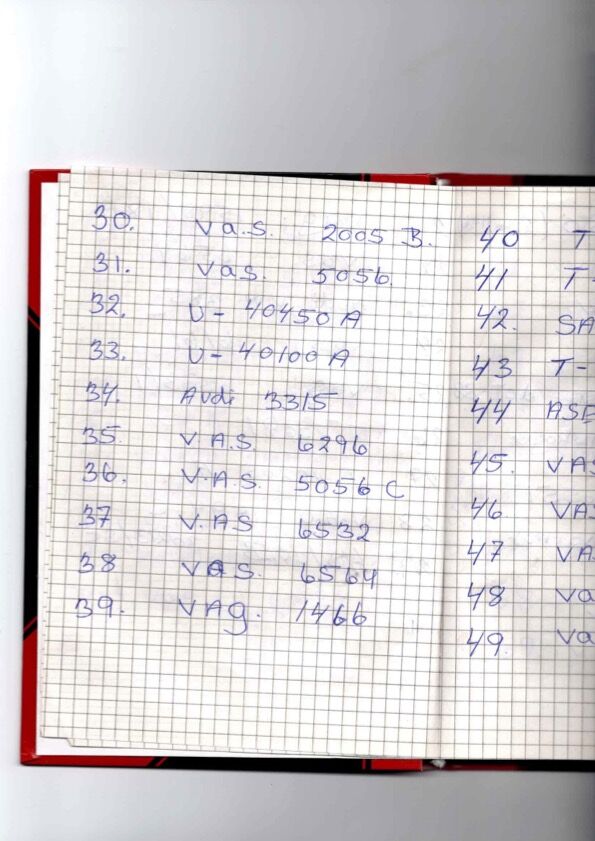 30. Va.S. 2005 B.
31. Vas. 5056.
32. U- 40450 A
33. U- 40100 A
34. Audi 3315
35 V A.S. 6296
36. V.A.S. 5056 C
37 V.AS 6532
38 VAS. 6564
39. VAg. 1466
40 T
41 T-
42. SA
43 T-
44 ASE
45. VAS
46 VAS
47 VA
48 Va
49. Va